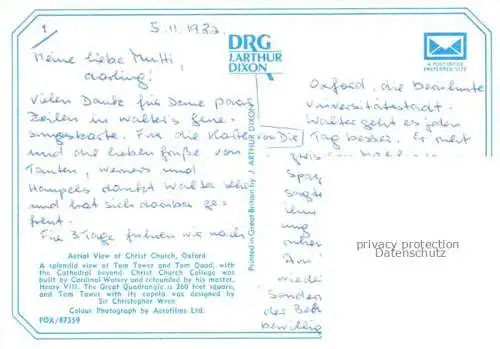 1
5.11.1982
Meine liebe Mutti,
darling!
Vielen Dank für Deine paar
Zeilen in Walter's Gene-
sungskarte. Für die Karten von Dir
und die lieben Grüße von
Tanten, Werners und
Hampels dankt Walter sehr
und hat sich darüber ge-
freut.
Für 3 Tage fuhren wir nach
DRG
J.ARTHUR
DIXON
Printed in Great Britain by J. ARTHUR DIXON
A POST OFFICE
PREFERRED SIZE
Oxford, die berühmte
Universitätsstadt.
Walter geht es jeden
Tag besser. Er geht
zwischen
Spaz
sagte
ihm
ung
Am
wieder
Sonder
des Be
bewilig
privacy protection
Datenschutz
Aerial View of Christ Church, Oxford
A splendid view of Tom Tower and Tom Quad, with
the Cathedral beyond. Christ Church College was
built by Cardinal Wolsey and refounded by his master,
Henry VIII. The Great Quadrangle is 260 feet square,
and Tom Tower with its cupola was designed by
Sir Christopher Wren.
Colour Photograph by Aerofilms Ltd.
POX/87359